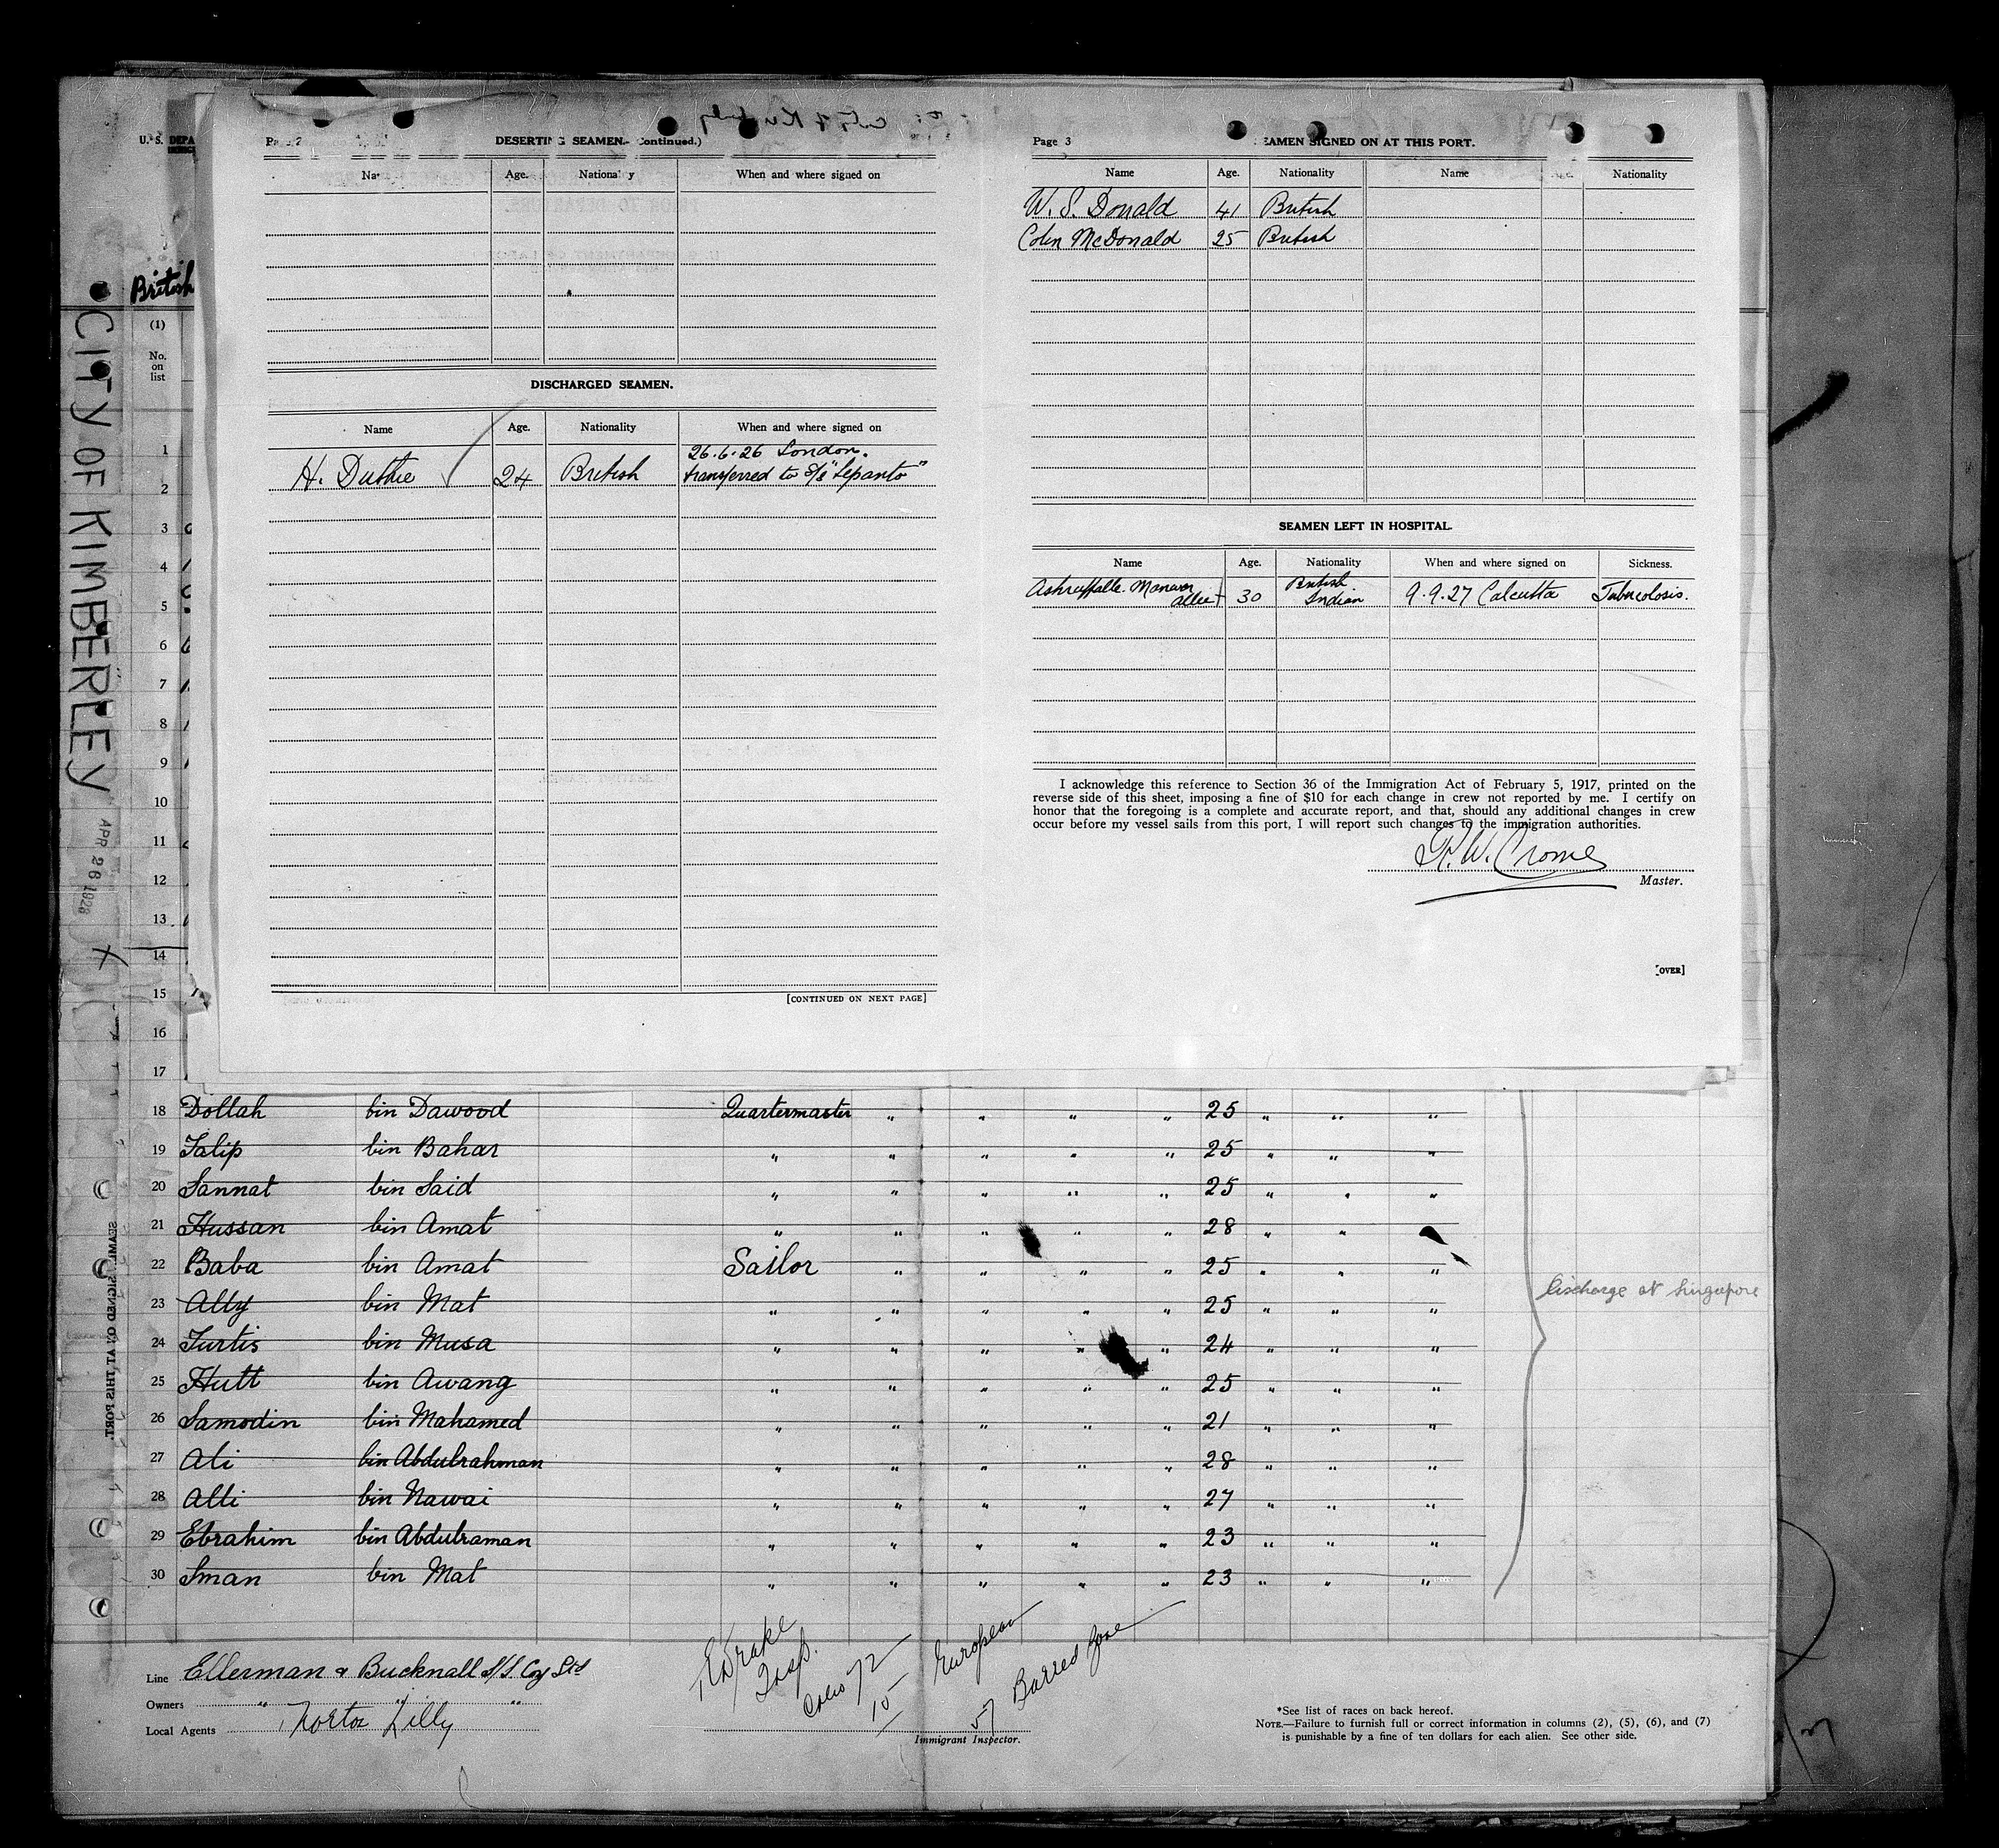 U. S. DEPA
British
(1)
No.
on
list
CITY OF KIMBERLEY
APR 26 1928
X
Page 2
DESERTING SEAMEN.—(Continued.)
Age.
When and where signed on
DISCHARGED SEAMEN.
Name Age. Nationality When and where signed on
26.6.26 London.
H. Duthie 24 British transferred to S/S "Lepanto"
[CONTINUED ON NEXT PAGE]
Page 3
SEAMEN SIGNED ON AT THIS PORT.
Name Age. Nationality Name Age. Nationality
W. S. Donald 41 British
Colin McDonald 25 British
SEAMEN LEFT IN HOSPITAL.
Name Age. Nationality When and where signed on Sickness.
30 British Indian 9.9.27 Calcutta Tuberculosis.
I acknowledge this reference to Section 36 of the Immigration Act of February 5, 1917, printed on the
reverse side of this sheet, imposing a fine of $10 for each change in crew not reported by me. I certify on
honor that the foregoing is a complete and accurate report, and that, should any additional changes in crew
occur before my vessel sails from this port, I will report such changes to the immigration authorities.
W. Crome
Master.
[OVER]
1
2
3
4
5
6
7
8
9
10
11
12
13
14
15
16
17
18 Dollah bin Dawood Quartermaster " " " " 25 " " "
19 Talip bin Bahar " " " " " 25 " " "
20 Sannat bin Said " " " " " 25 " " "
21 Hussan bin Amat " " " " " 28 " "
22 Baba bin Amat Sailor " " " " 25 " " "
23 Ally bin Mat " " " " " 25 " " "
24 Turtis bin Musa " " " " " 24 " " "
25 Hutt bin Awang " " " " " 25 " " "
26 Samodin bin Mahamed " " " " " 21 " " "
27 Ali bin Abdulrahman " " " " " 28 " " "
28 Alli bin Nawai " " " " " 27 " " "
29 Ebrahim bin Abdulraman " " " " " 23 " " "
30 Iman bin Mat " " " " " 23 " " "
discharge at Singapore
SEAMEN SIGNED ON AT THIS PORT.
Line Ellerman & Bucknall S/S Coy Ltd
Owners " " "
Local Agents Norton Lilly
Drake
Insp.
72
15 European
57 Barred Zone
Immigrant Inspector.
*See list of races on back hereof.
NOTE.—Failure to furnish full or correct information in columns (2), (5), (6), and (7)
is punishable by a fine of ten dollars for each alien. See other side.